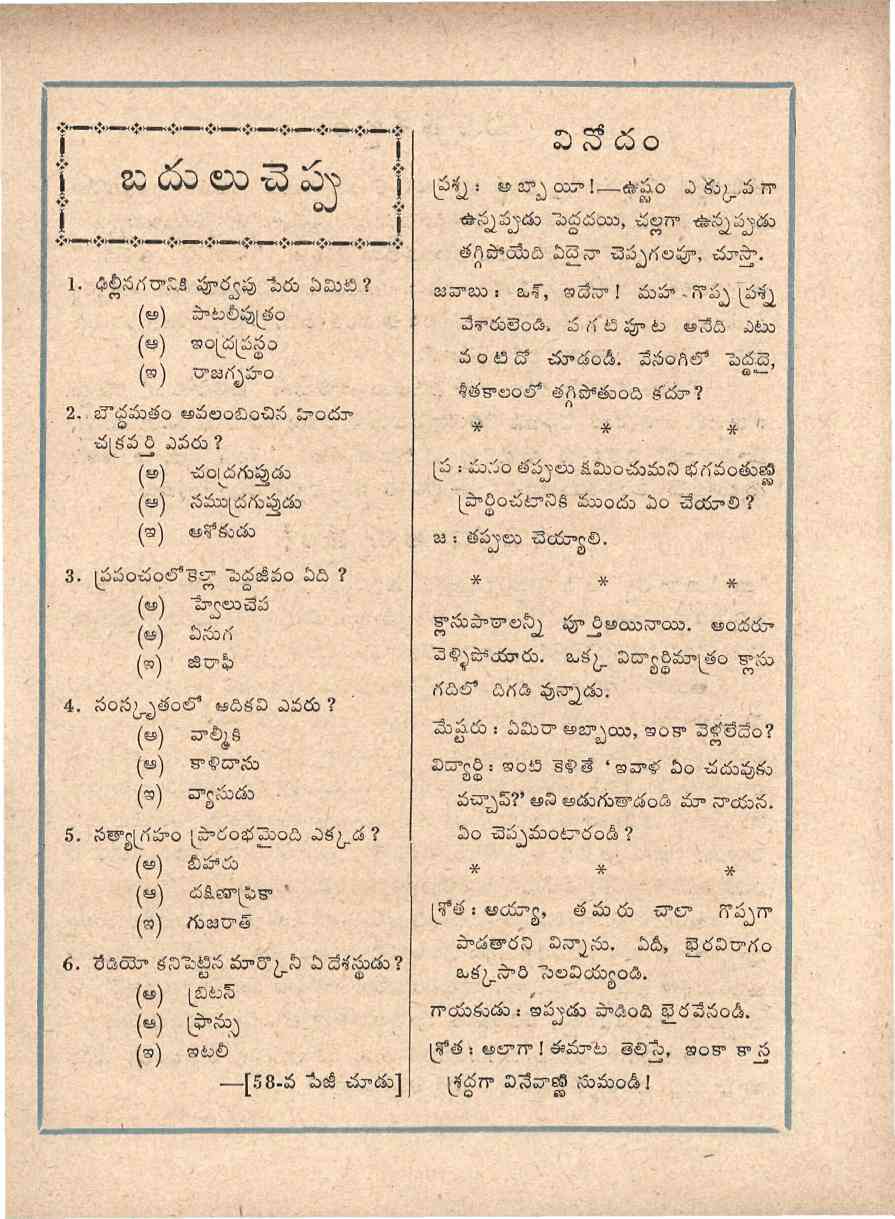 బదులుచెప్పు
1. ఢిల్లీనగరానికి పూర్వపు పేరు ఏమిటి?
(అ) పాటలీపుత్రం
(ఆ) ఇంద్రప్రస్థం
(ఇ) రాజగృహం
2. బౌద్ధమతం అవలంబించిన హిందూ
చక్రవర్తి ఎవరు?
(అ) చంద్రగుప్తుడు
(ఆ) సముద్రగుప్తుడు
(ఇ) అశోకుడు
3. ప్రపంచంలోకెల్లా పెద్దజీవం ఏది?
(అ) హ్వేలుచేప
(ఆ) ఏనుగ
(ఇ) జిరాఫీ
4. సంస్కృతంలో ఆదికవి ఎవరు?
(అ) వాల్మీకి
(ఆ) కాళిదాసు
(ఇ) వ్యాసుడు
5. సత్యాగ్రహం ప్రారంభమైంది ఎక్కడ?
(అ) బీహారు
(ఆ) దక్షిణాఫ్రికా
(ఇ) గుజరాత్
6. రేడియో కనిపెట్టిన మార్కొనీ ఏ దేశస్థుడు?
(అ) బ్రిటన్
(ఆ) ఫ్రాన్సు
(ఇ) ఇటలీ
—[58-వ పేజీ చూడు]
వినోదం
ప్రశ్న: అబ్బాయీ!—ఉష్ణం ఎక్కువగా
ఉన్నప్పుడు పెద్దదయి, చల్లగా ఉన్నప్పుడు
తగ్గిపోయేది ఏదైనా చెప్పగలవూ, చూస్తా.
జవాబు: ఒశ్, ఇదేనా! మహ గొప్ప ప్రశ్న
వేశారులెండి. పగటిపూట అనేది ఎటు
వంటిదో చూడండీ. వేసంగిలో పెద్దదై,
శీతకాలంలో తగ్గిపోతుంది కదూ?
* * *
ప్ర: మనం తప్పులు క్షమించుమని భగవంతుణ్ణి
ప్రార్థించటానికి ముందు ఏం చేయాలి?
జ: తప్పులు చెయ్యాలి.
* * *
క్లాసుపాఠాలన్నీ పూర్తిఅయినాయి. అందరూ
వెళ్ళిపోయారు. ఒక్క విద్యార్థిమాత్రం క్లాసు
గదిలో దిగడి వున్నాడు.
మేష్టరు: ఏమిరా అబ్బాయి, ఇంకా వెళ్లలేదేం?
విద్యార్థి: ఇంటి కెళితే ‘ఇవాళ ఏం చదువుకు
వచ్చావ్?’ అని అడుగుతాడండి మా నాయన.
ఏం చెప్పమంటారండీ?
* * *
శ్రోత: అయ్యా, తమరు చాలా గొప్పగా
పాడతారని విన్నాను. ఏదీ, భైరవిరాగం
ఒక్కసారి సెలవియ్యండి.
గాయకుడు: ఇప్పుడు పాడింది భైరవేనండీ.
శ్రోత: అలాగా! ఈమాట తెలిస్తే, ఇంకా కాస్త
శ్రద్ధగా వినేవాణ్ణి సుమండీ!